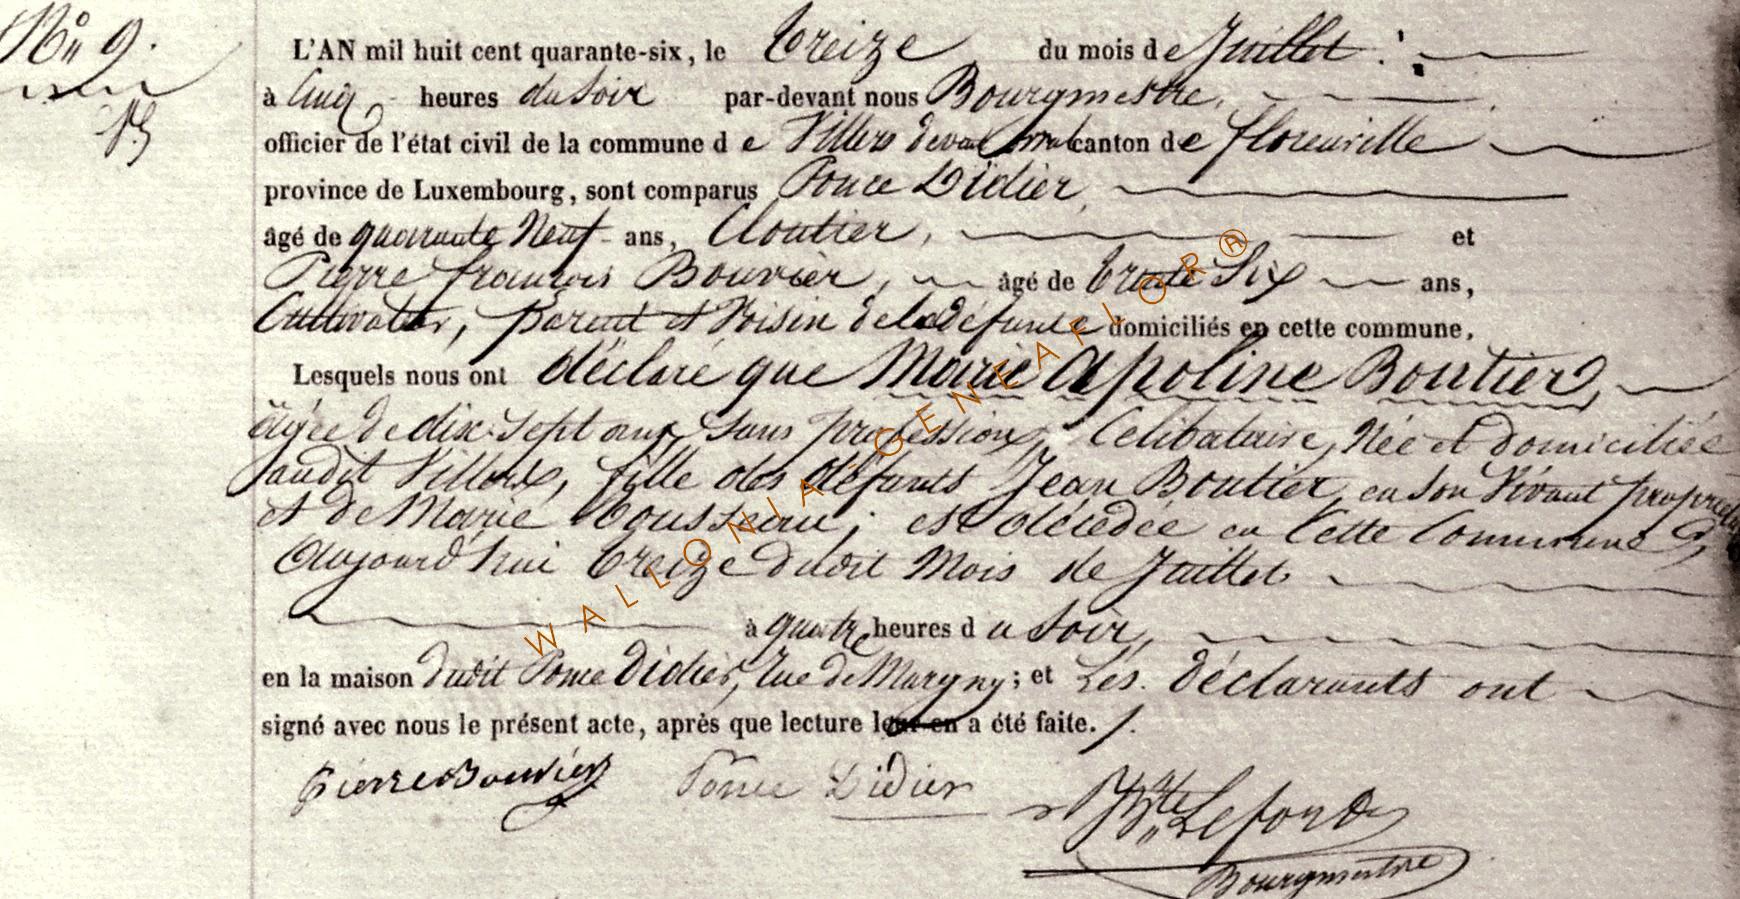 N° 9.
L'AN mil huit cent quarante-six, le treize du mois de Juillet :
à Cinq heures du Soir par-devant nous Bourgmestre,
officier de l'état civil de la commune de Villers devant orval canton de florenville
province de Luxembourg, sont comparus Ponce Didier,
âgé de quarante Neuf ans, Cloutier, et
Pierre françois Bouvier, âgé de trente Six ans,
Cultivateur, parent et Voisin de la défunte domiciliés en cette commune,
Lesquels nous ont déclaré que Marie Apoline Boutier,
âgée de dix-sept ans, Sans profession, Célibataire, Née et domiciliée
audit Villers, fille des défunts Jean Boutier, en Son Vivant propriétaire
et de Marie Cousseau ; est décédée en Cette Commune,
Aujourd'hui treize dudit Mois de Juillet
à quatre heures du Soir,
en la maison dudit Ponce Didier, rue de Margny ; et Les déclarants ont
signé avec nous le présent acte, après que lecture leur en a été faite. /.
Pierre Bouvier Ponce Didier Lefond
Bourgmestre
WALLONIA-GENEAFLOR®